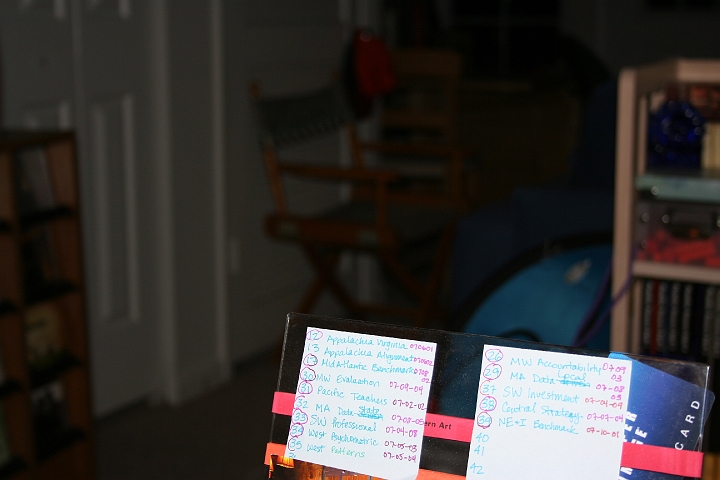 12 Appalachia Virginia 070601
13 Appalachia Alignment 070602
17 MidAtlantic Benchmark 0708 02
30 MW Evaluation 07-09-04
31 Pacific Teachers 07-02-02
32 MA Data State 07-08-05
33 SW Professional 07-04-08
34 West Psychometric 07-05-03
35 West Patterns 07-05-04
26 MW Accountability 07-09 03
29 MA Data Local 07-08 03
37 SW Investment 07-04-09
38 Central Strategy 07-07-04
39 NE+I Benchmark 07-10-01
40
41
42
ern Art
CARD